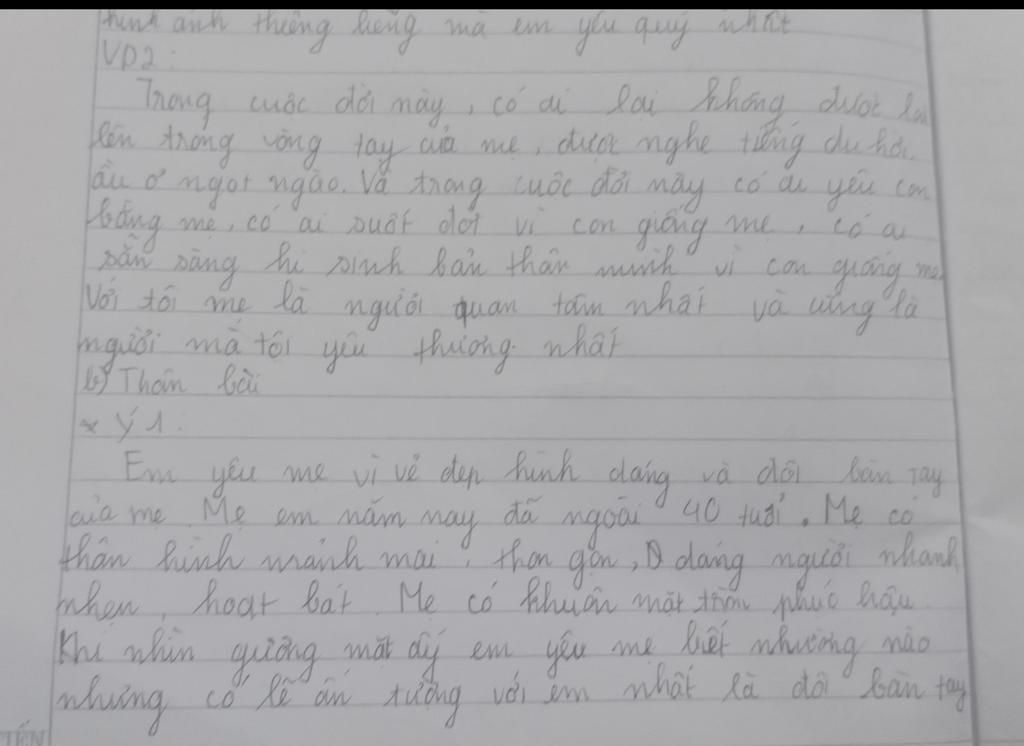 hình ảnh thiêng liêng mà em yêu quý nhất
VD2:
Trong cuộc đời này, có ai lại không được lớn
lên trong vòng tay của mẹ, được nghe tiếng du hời
ầu ơ ngọt ngào. Và trong cuộc đời này có ai yêu con
bằng mẹ, có ai suốt đời vì con giống mẹ, có ai
sẵn sàng hi sinh bản thân mình vì con giống mẹ.
Với tôi mẹ là người quan tâm nhất và cũng là
người mà tôi yêu thương nhất
b) Thân bài
* Ý 1.
Em yêu mẹ vì vẻ đẹp hình dáng và đôi bàn tay
của mẹ. Mẹ em năm nay đã ngoài 40 tuổi. Mẹ có
thân hình mảnh mai, thon gọn, dáng người nhanh
nhẹn, hoạt bát. Mẹ có khuôn mặt tròn phúc hậu.
Khi nhìn gường mặt ấy em yêu mẹ biết nhường nào
nhưng có lẽ ấn tượng với em nhất là đôi bàn tay